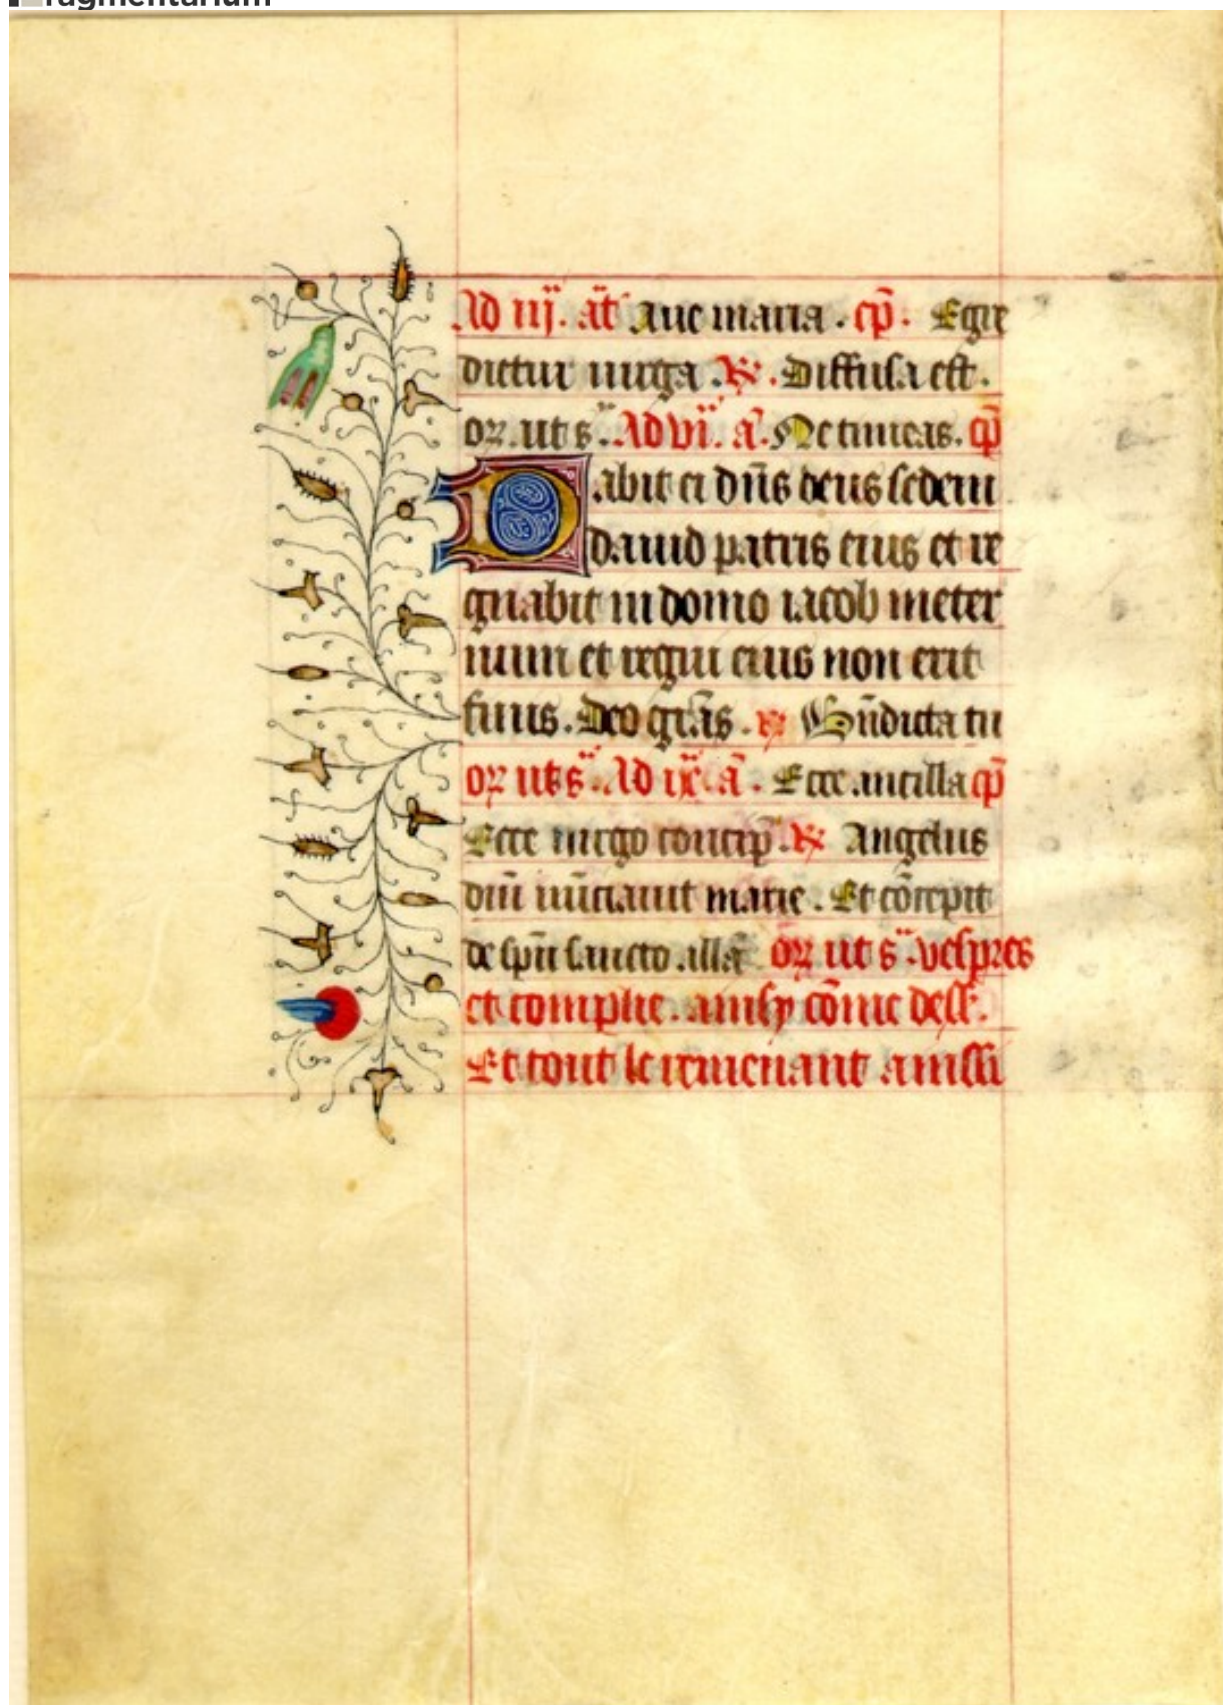 ragmentarium
Ad iij. āt Aue maria. cp̄. Egre
dietur uirga. R. Diffusa est.
or. ut s. Ad vi. ā. Ne timeas. cp̄
Dabit ei dn̄s deus sedem
dauid patris eius et re
gnabit in domo iacob in eter
num et regni eius non erit
finis. Deo grās. R Bn̄dicta tu
or ut s. Ad ix. ā. Ecce ancilla cp̄
Ecce uirgo concip̄. R Angelus
dn̄i nūciauit marie. Et cōcepit
de spū sancto. allā or ut s. vespres
et complie. ainsy cōme dess.
Et tout le remenant ainssi